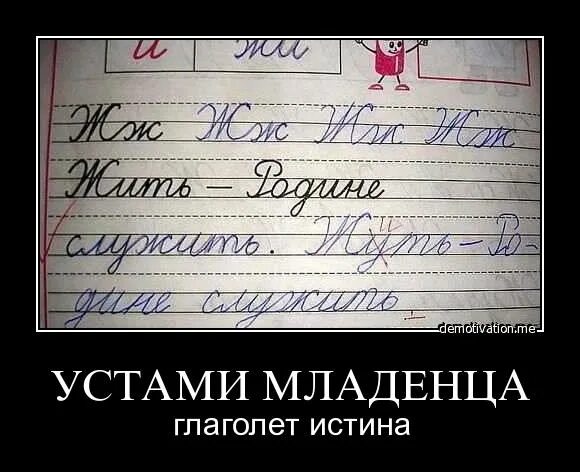 и жи
Жж Жж Жж Жж
Жить – Родине
служить. Жуть – Ро-
и
дине служить
demotivation.me
УСТАМИ МЛАДЕНЦА
глаголет истина